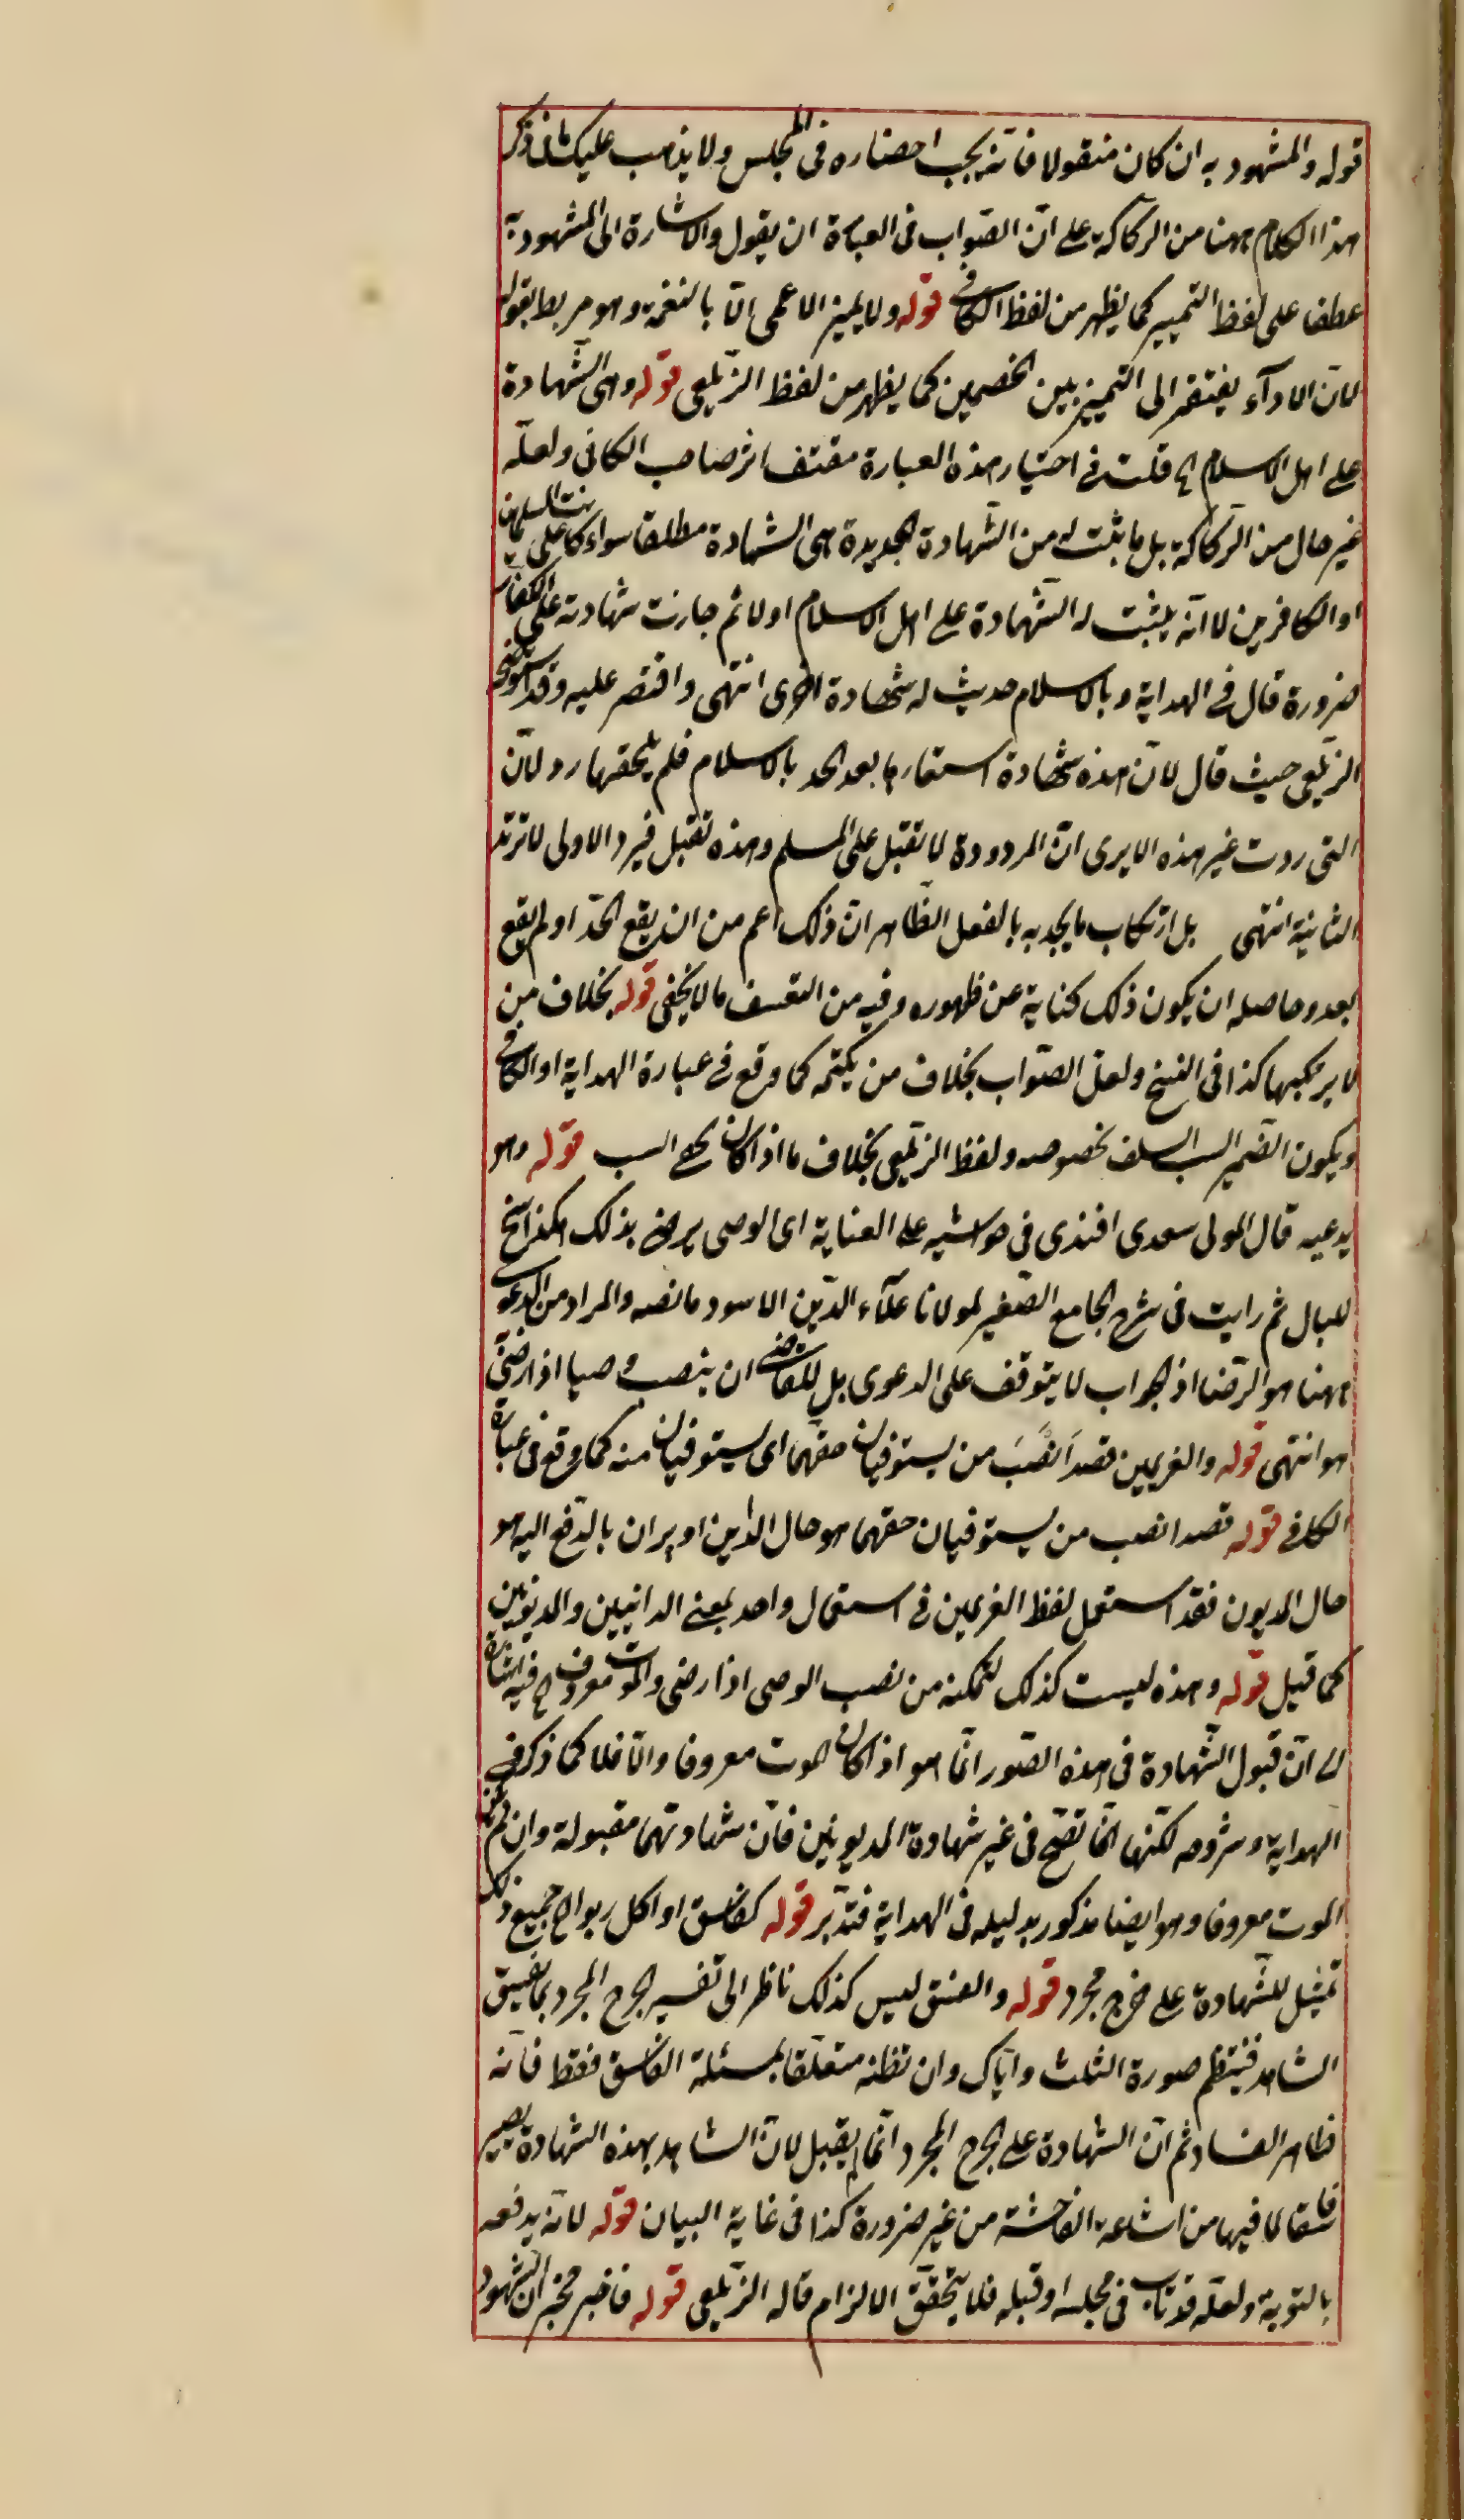 قوله والمشهود به ان كان منقولا فانه يجب احضاره فى المجلس ولا يذهب عليك ما فى ذكر
هذا الكلام ههنا من الركاكة على ان الصواب فى العبارة ان يقول والاشارة الى المشهود به
عطفا على لفظ التمييز كما يظهر من لفظ الكافى قوله ولا يميز الاعمى الا بالنغمة وهو مربط بقوله
لان الادآء يفتقر الى التمييز بين الخصمين كما يظهر من لفظ الزيلعى قوله وهى الشهادة
على اهل الاسلام الخ قلت فى اختيار هذه العبارة مقتف اثر صاحب الكافى ولعله
غير خال من الركاكة بل ما يثبت له من الشهادة الجديدة هى الشهادة مطلقا سواء كانت على المسلمين
او الكافرين لا انه يثبت له الشهادة على اهل الاسلام اولا ثم جازت شهادته على الكفار
ضرورة قال فى الهداية وبالاسلام حدث له شهادة اخرى انتهى واقتصر عليه وقد اوضحه
الزيلعى حيث قال لان هذه شهادة استفادها بعد الحد بالاسلام فلم يلحقها رد لان
التى ردت غير هذه الا يرى ان المردودة لا تقبل على المسلم وهذه تقبل فبرد الاولى لا ترتد
الثانية انتهى بل ارتكاب ما يحد به بالفعل الظاهر ان ذلك اعم من ان يقع الحد او لم يقع
بعد وحاصله ان يكون ذلك كناية عن ظهوره وفيه من التعسف ما لا يخفى قوله بخلاف من
لا يرتكبها كذا فى النسخ ولعل الصواب بخلاف من يكتمه كما وقع فى عبارة الهداية او الكافى
ويكون الضمير السب السلف بخصوصه ولفظ الزيلعى بخلاف ما اذا كان يخفى السب قوله وهو
يدعيه قال المولى سعدى افندى فى حواشيه على العناية اى الوصى يرضى بذلك هكذا سنح
للبال ثم رايت فى شرح الجامع الصغير لمولانا علآء الدين الاسود ما نصه والمراد من الدعوى
ههنا هو الرضا اذ الجواب لا يتوقف على الدعوى بل للقاضى ان ينصب وصيا اذا رضى
هو انتهى قوله والغريمين قصدا نصب من يستوفيان حقهما اى يستوفيان منه كما وقع فى عبارة
الكافى قوله قصدا نصب من يستوفيان حقهما هو حال الداين او يبران بالدفع اليه هو
حال المديون فقد استعمل لفظ الغريمين فى استعمال واحد بمعنى الداينين والمديونين
كما قيل قوله وهذه ليست كذلك لتمكنه من نصب الوصى اذا رضى والموت معروف الخ فيه اشارة
الى ان قبول الشهادة فى هذه الصور انما هو اذا كان الموت معروفا والا فلا كما ذكر فى
الهداية وشروحه لكنها انما تصح فى غير شهادة المديونين فان شهادتهما مقبولة وان لم يكن
الموت معروفا وهو ايضا مذكور بدليله فى الهداية فتدبر قوله كفاسق او اكل ربوا الخ جميع ذلك
تمثيل للشهادة على جرح مجرد قوله والفسق ليس كذلك ناظر الى تفسير الجرح المجرد بما يفسق
الشاهد فينتظم صورة الثلث واياك وان تظنه متعلقا بمسئلة الفاسق فقط فانه
ظاهر الفساد ثم ان الشهادة على الجرح المجرد انما لم يقبل لان الشاهد بهذه الشهادة يصير
فاسقا لما فيها من اشاعة الفاحشة من غير ضرورة كذا فى غاية البيان قوله لانه يدفعه
بالتوبة ولعله قد تاب فى مجلسه او قبله فلا يتحقق الالزام قاله الزيلعى قوله فاخبر مخبر ان الشهود